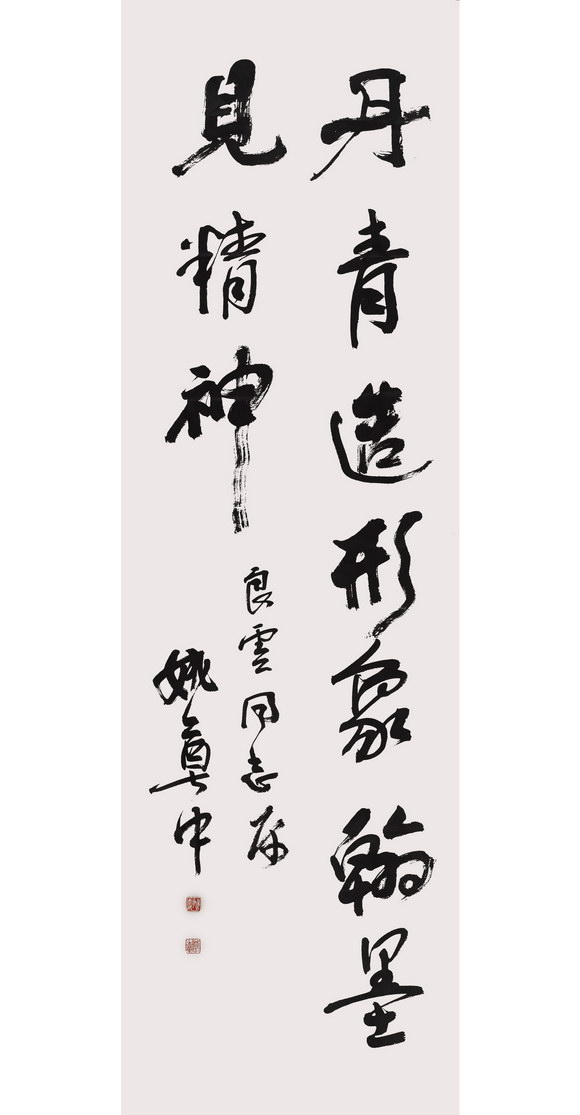 丹青造形象翰墨
見精神
良雲同志屬
姚奠中